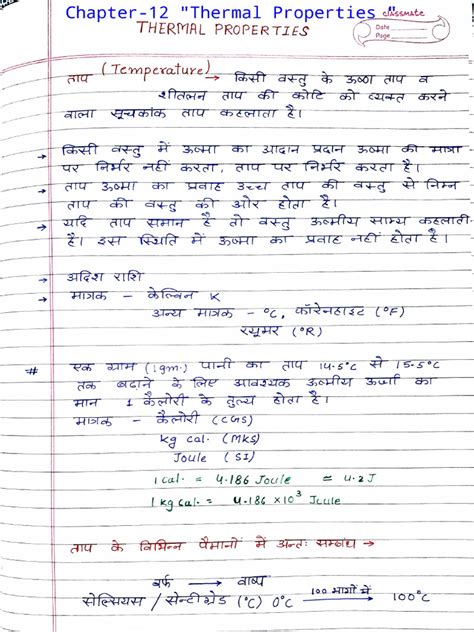 Chapter-12 "Thermal Properties "
classmate
Date
Page
THERMAL PROPERTIES
ताप (Temperature) → किसी वस्तु के ऊष्ण ताप व
शीतलन ताप की कोटि को व्यक्त करने
वाला सूचकांक ताप कहलाता है।
→ किसी वस्तु में ऊष्मा का आदान प्रदान ऊष्मा की मात्रा
पर निर्भर नहीं करता, ताप पर निर्भर करता है।
→ ताप ऊष्मा का प्रवाह उच्च ताप की वस्तु से निम्न
ताप की वस्तु की ओर होता है।
→ यदि ताप समान है तो वस्तु ऊष्मीय साम्य कहलाती
है। इस स्थिति में ऊष्मा का प्रवाह नहीं होता है।
→ अदिश राशि
→ मात्रक - केल्विन K
अन्य मात्रक - °C, फॉरेनहाइट (°F)
रयूमर (°R)
# एक ग्राम (1gm.) पानी का ताप 14.5°C से 15.5°C
तक बढ़ाने के लिए आवश्यक ऊष्मीय ऊर्जा का
मान 1 कैलोरी के तुल्य होता है।
मात्रक - कैलोरी (CGS)
kg cal. (MKS)
Joule (SI)
1 cal. = 4.186 Joule ≃ 4.2 J
1 kg cal. = 4.186 ×10³ Joule
ताप के विभिन्न पैमानों में अन्तः सम्बंध →
बर्फ → वाष्प
सेल्सियस / सेन्टीग्रेड (°C) 0°C 100 भागों में → 100°C